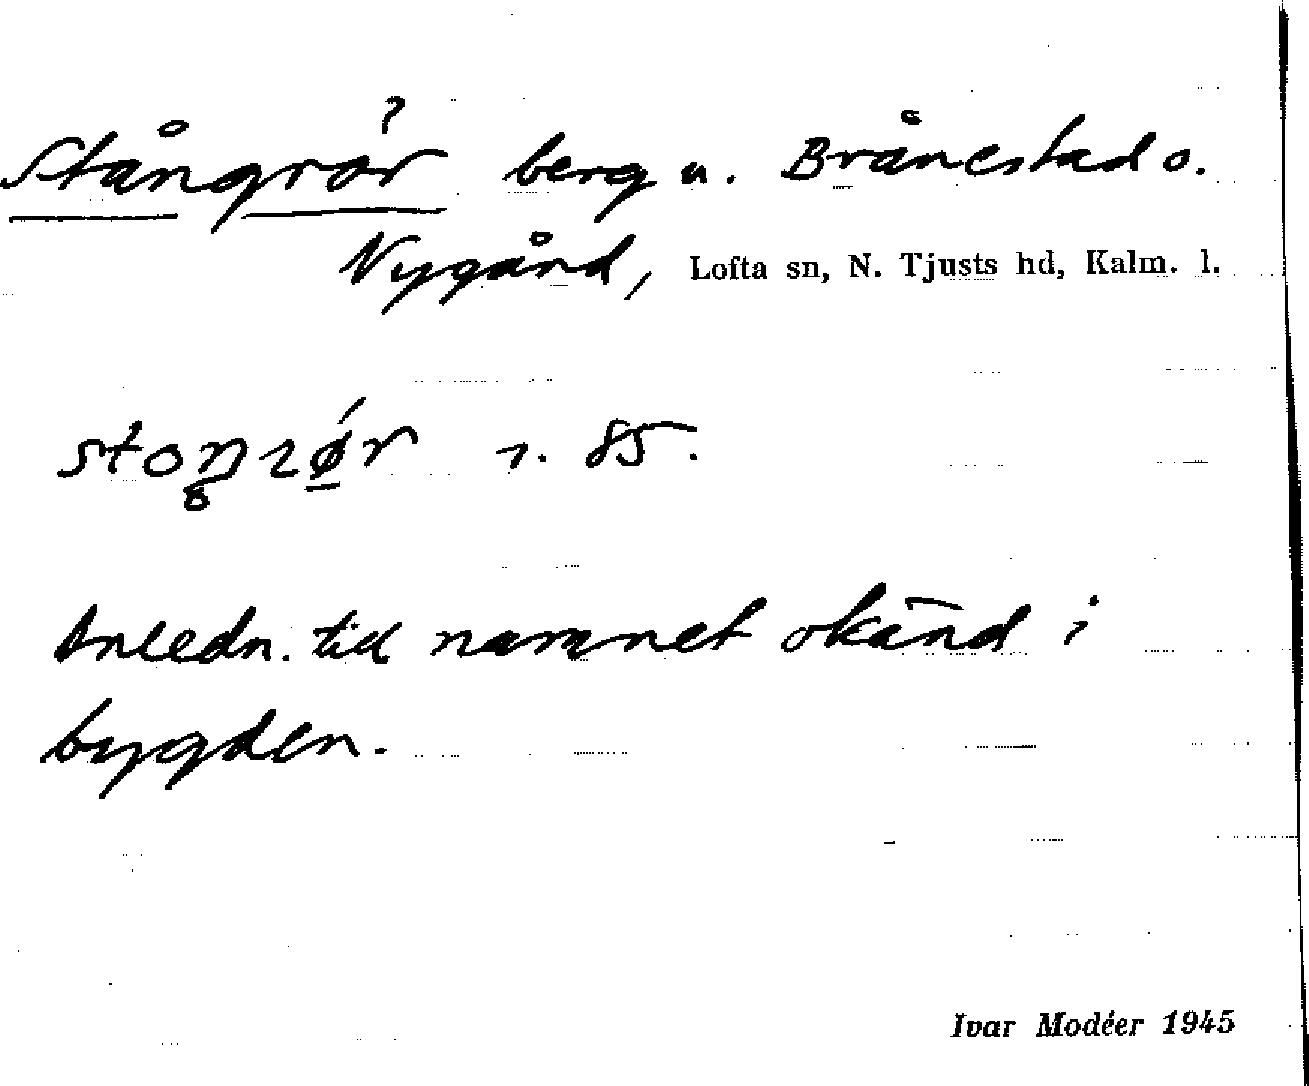 Stångrör berg u. Brånestad o.
Nygård, Lofta sn, N. Tjusts hd, Kalm. l.
1. 85.
Anledn. till namnet okänd i
bygden.
Ivar Modéer 1945